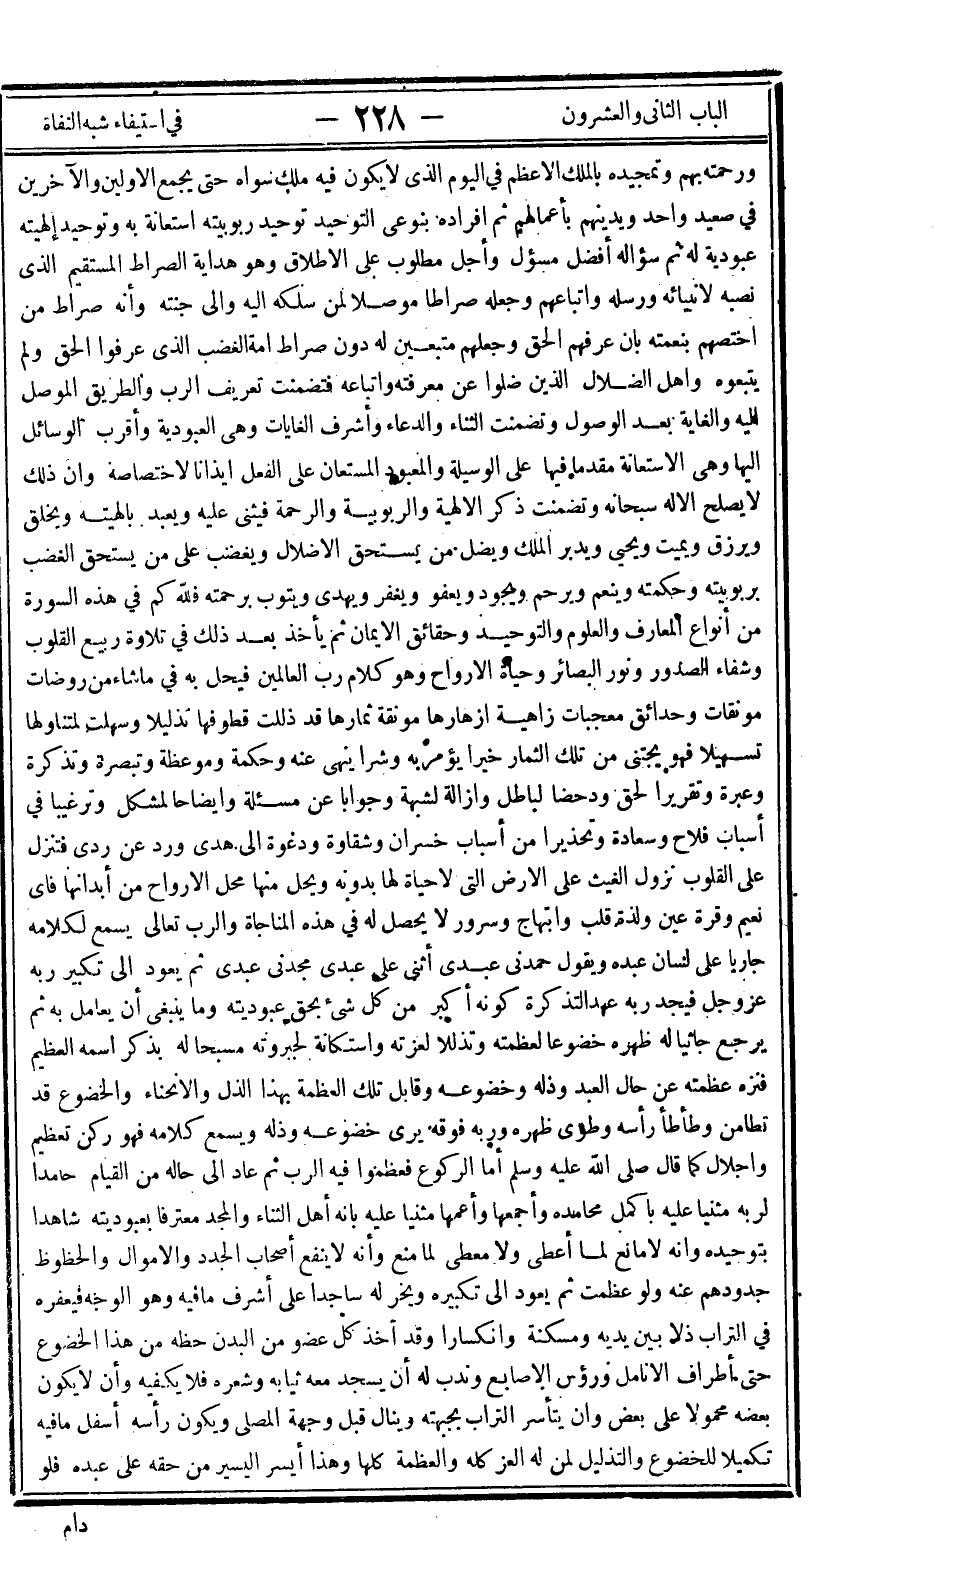 الباب الثانى والعشرون — ٢٢٨ — فى استيفاء شبه النفاة
ورحمته بهم وتمجيده بالملك الاعظم فى اليوم الذى لايكون فيه ملك سواه حتى يجمع الاولين والآخرين
فى صعيد واحد ويدينهم بأعمالهم ثم افراده بنوعى التوحيد توحيد ربوبيته استعانة به وتوحيد إلهيته
عبودية له ثم سؤاله أفضل مسؤل وأجل مطلوب على الاطلاق وهو هداية الصراط المستقيم الذى
نصبه لانبيائه ورسله واتباعهم وجعله صراطا موصلا لمن سلكه اليه والى جنته وأنه صراط من
اختصهم بنعمته بان عرفهم الحق وجعلهم متبعين له دون صراط امة الغضب الذى عرفوا الحق ولم
يتبعوه واهل الضلال الذين ضلوا عن معرفته واتباعه فتضمنت تعريف الرب والطريق الموصل
اليه والغاية بعد الوصول وتضمنت الثناء والدعاء وأشرف الغايات وهى العبودية وأقرب الوسائل
اليها وهى الاستعانة مقدما فيها على الوسيلة والمعبود المستعان على الفعل ايذانا لاختصاصة وان ذلك
لايصلح الاله سبحانه وتضمنت ذكر الالهية والربوبية والرحمة فيثنى عليه ويعبد بالهيته ويخلق
ويرزق ويميت ويحيى ويدبر الملك ويضل من يستحق الاضلال ويغضب على من يستحق الغضب
بربوبيته وحكمته وينعم ويرحم ويجود ويعفو ويغفر ويهدى ويتوب برحمته فلله كم فى هذه السورة
من أنواع المعارف والعلوم والتوحيد وحقائق الايمان ثم يأخذ بعد ذلك فى تلاوة ربيع القلوب
وشفاء الصدور ونور البصائر وحياة الارواح وهو كلام رب العالمين فيحل به فى ماشاء من روضات
مونقات وحدائق معجبات زاهية ازهارها مونقة ثمارها قد ذللت قطوفها تذليلا وسهلت لمتناولها
تسهيلا فهو يجتنى من تلك الثمار خيرا يؤمر به وشرا ينهى عنه وحكمة وموعظة وتبصرة وتذكرة
وعبرة وتقريرا لحق ودحضا لباطل وازالة لشبهة وجوابا عن مسئلة وايضاحا لمشكل وترغيبا فى
أسباب فلاح وسعادة وتحذيرا من أسباب خسران وشقاوة ودعوة الى هدى ورد عن ردى فتنزل
على القلوب نزول الغيث على الارض التى لاحياة لها بدونه ويحل منها محل الارواح من أبدانها فاى
نعيم وقرة عين ولذة قلب وابتهاج وسرور لا يحصل له فى هذه المناجاة والرب تعالى يسمع لكلامه
جاريا على لسان عبده ويقول حمدنى عبدى أثنى على عبدى مجدنى عبدى ثم يعود الى تكبير ربه
عزوجل فيجد ربه عهد التذكرة كونه أكبر من كل شئ بحق عبوديته وما ينبغى أن يعامل به ثم
يرجع جاثيا له ظهره خضوعا لعظمته وتذللا لعزته واستكانة لجبروته مسبحا له بذكر اسمه العظيم
فنزه عظمته عن حال العبد وذله وخضوعه وقابل تلك العظمة بهذا الذل والانحناء والخضوع قد
تطامن وطأطأ رأسه وطوى ظهره وربه فوقه يرى خضوعه وذله ويسمع كلامه فهو ركن تعظيم
واجلال كما قال صلى الله عليه وسلم أما الركوع فعظموا فيه الرب ثم عاد الى حاله من القيام حامدا
لربه مثنيا عليه باكمل محامده وأجمعها وأعمها مثنيا عليه بانه أهل الثناء والمجد معترفا بعبوديته شاهدا
بتوحيده وانه لامانع لما أعطى ولا معطى لما منع وأنه لاينفع أصحاب الجدد والاموال والحظوظ
جدودهم عنه ولو عظمت ثم يعود الى تكبيره ويخر له ساجدا على أشرف مافيه وهو الوجه فيعفره
فى التراب ذلا بين يديه ومسكنة وانكسارا وقد أخذ كل عضو من البدن حظه من هذا الخضوع
حتى أطراف الانامل ورؤس الاصابع وندب له أن يسجد معه ثيابه وشعره فلا يكفيه وأن لايكون
بعضه محمولا على بعض وان يتأسر التراب بجبهته وينال قبل وجهة المصلى ويكون رأسه أسفل مافيه
تكميلا للخضوع والتذليل لمن له العز كله والعظمة كلها وهذا أيسر اليسير من حقه على عبده فلو
دام